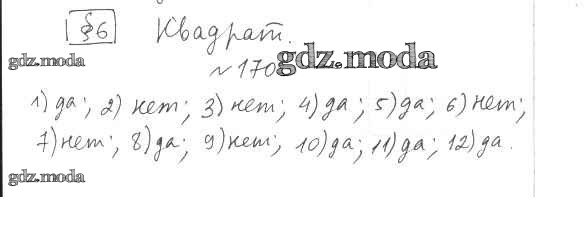 §6 Квадрат.
gdz.moda
№170 gdz.moda
1) да; 2) нет; 3) нет; 4) да; 5) да; 6) нет;
7) нет; 8) да; 9) нет; 10) да; 11) да; 12) да.
gdz.moda